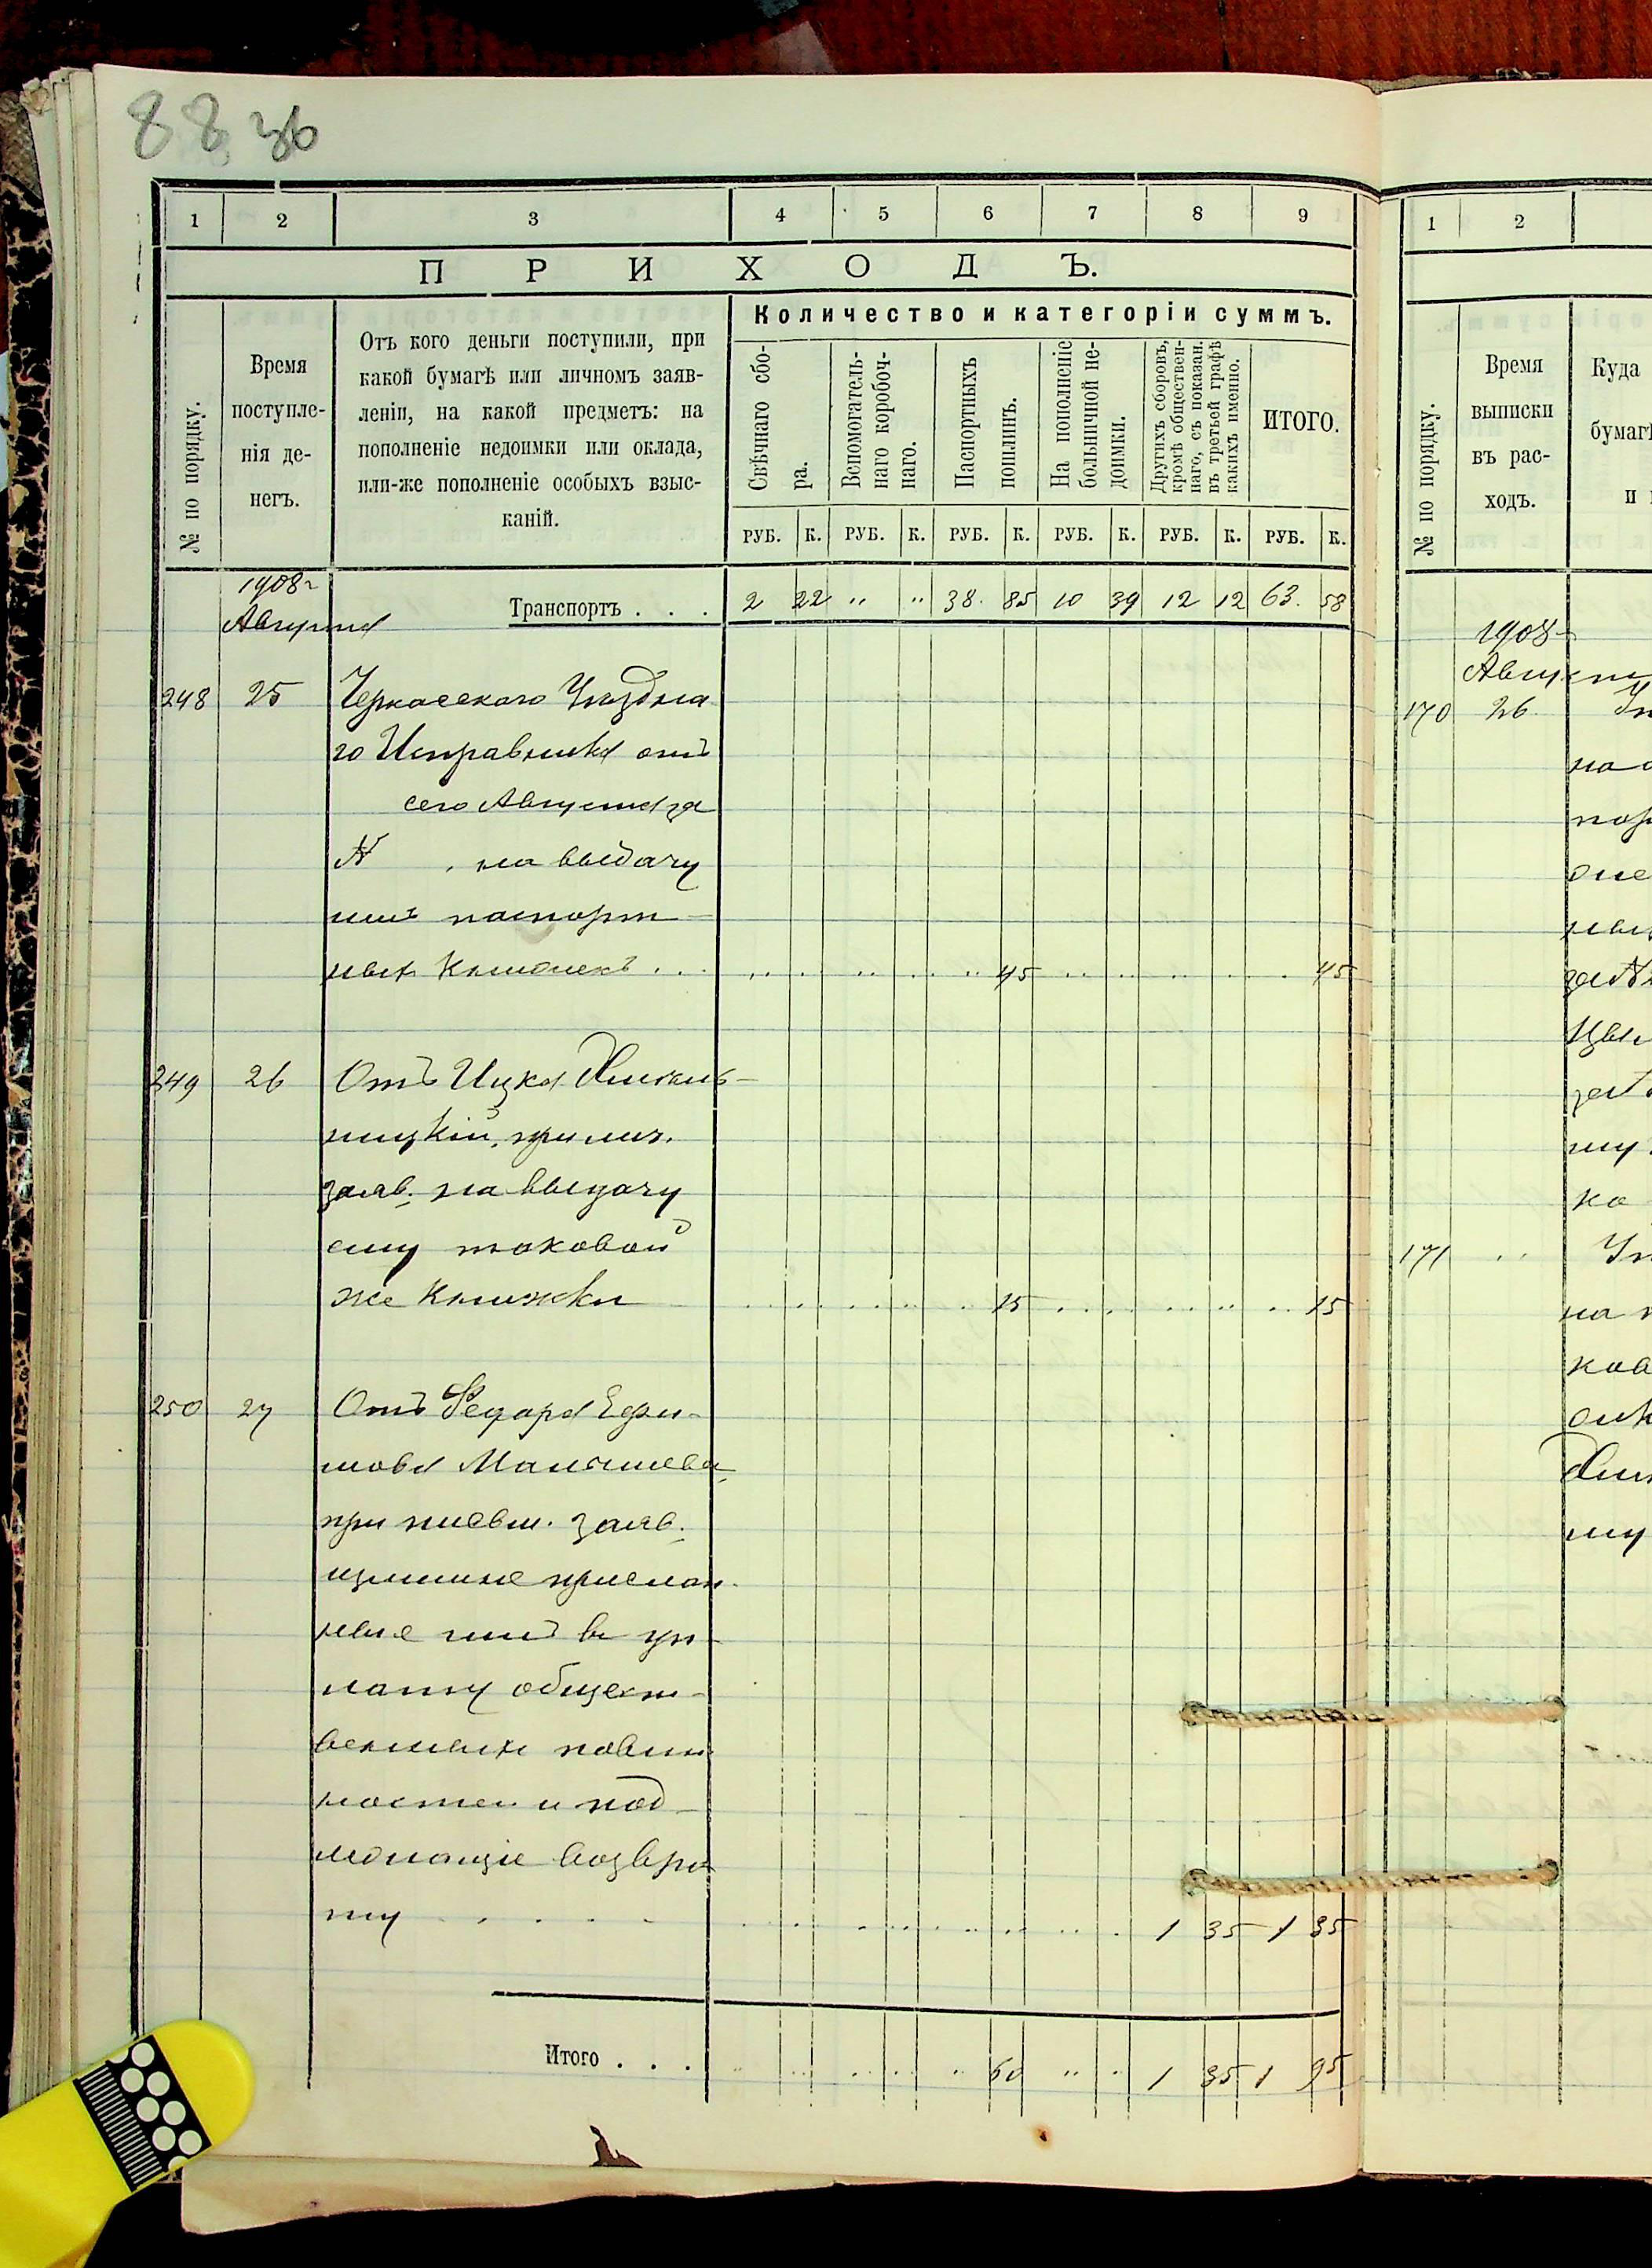 88 36
1 2 3 4 5 6 7 8 9
ПРИХОДЪ.
№ по порядку.
Время поступле-
нія де-
негъ.
Отъ кого деньги поступили, при
какой бумагѣ или личномъ заяв-
леніи, на какой предметъ: на
пополненіе недоимки или оклада,
или-же пополненіе особыхъ взыс-
каній.
Количество и категоріи суммъ.
Свѣчнаго сбо-
ра.
Вспомогатель-
наго коробоч-
наго.
Паспортныхъ
пошлинъ.
На пополненіе
больничной не-
доимки.
Другихъ сборовъ,
кромѣ обществен-
наго, съ показан.
въ третьей графѣ
какихъ именно.
ИТОГО.
РУБ. К. РУБ. К. РУБ. К. РУБ. К. РУБ. К. РУБ. К.
1908 г
Августа
Транспортъ . . . 2 22 " " 38. 85 10 39 12 12 63. 58
248 25 Черкасскаго Уѣздна
го Исправника отъ
сего Августа за
N , на выдачу
имъ паспорт
ныхъ книжекъ . . . 45 45
249 26 Отъ Ицка
при лич.
заяв. на выдачу
ему таковой
же книжки 15 15
250 27 Отъ Федора Ефи-
мова
при письм. заяв.
прислан-
ные имъ въ уп-
лату общест-
венныхъ повин
ностей и под-
лежащіе возвра
ту . . . . 1 35 1 35
Итого . . . " 60 " " 1 35 1 95
1 2
№ по порядку.
Время
выписки
въ рас-
ходъ.
Куда
бумаг
и
1908
Август
170 26
на
зa №
му
ко
171 "
на
ков
му